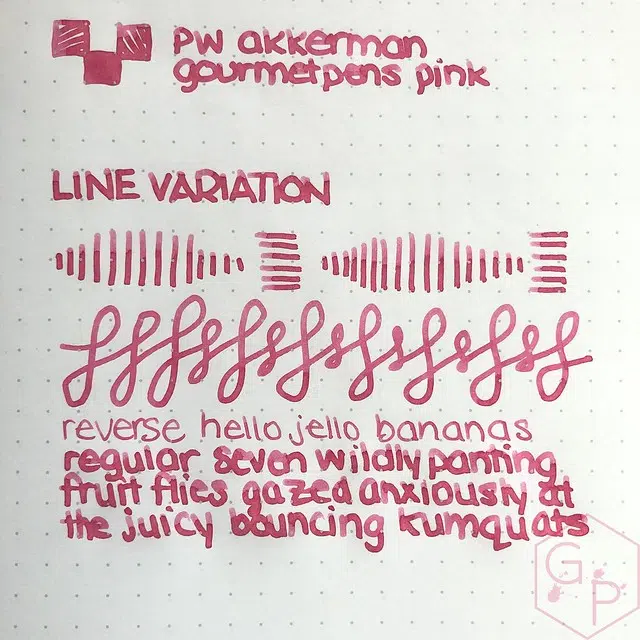 pw akkerman
gourmetpens pink
LINE VARIATION
reverse hello jello bananas
regular seven wildly panting
fruit flies gazed anxiously at
the juicy bouncing kumquats
G P